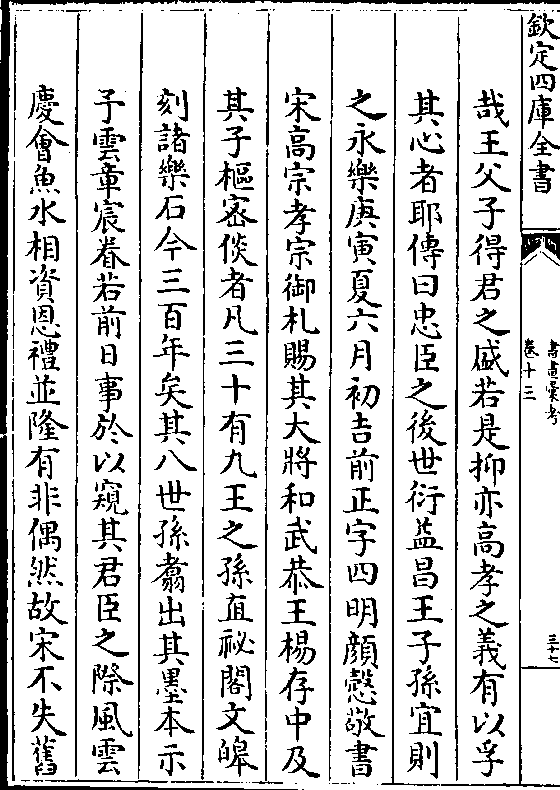 欽定四庫全書
書畫彙考
卷十三
三十七
哉王父子得君之盛若是抑亦高孝之義有以孚
其心者耶傳曰忠臣之後世衍益昌王子孫宜則
之永樂庚寅夏六月初吉前正字四明顔慤敬書
宋高宗孝宗御札賜其大將和武恭王楊存中及
其子樞密倓者凡三十有九王之孫直祕閣文皥
刻諸樂石今三百年矣其八世孫翥出其墨本示
子雲章宸眷若前日事於以窺其君臣之際風雲
慶會魚水相資恩禮並隆有非偶然故宋不失舊